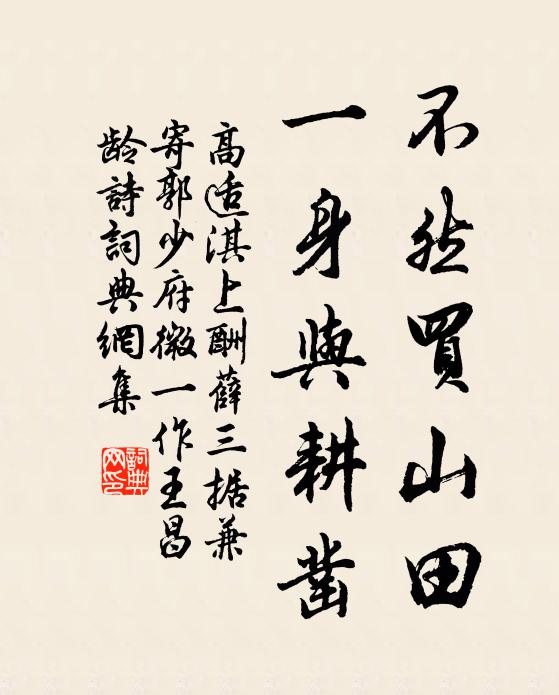 不然買山田
一身與耕鑿
高适淇上酬薛三据兼
寄郭少府微一作王昌
龄詩詞典網集
詞典
网印